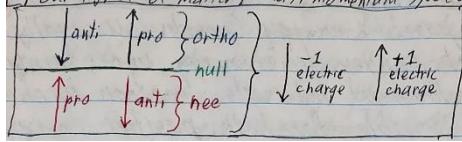 anti pro } ortho
null
pro anti } nee
-1
electric
charge
+1
electric
charge